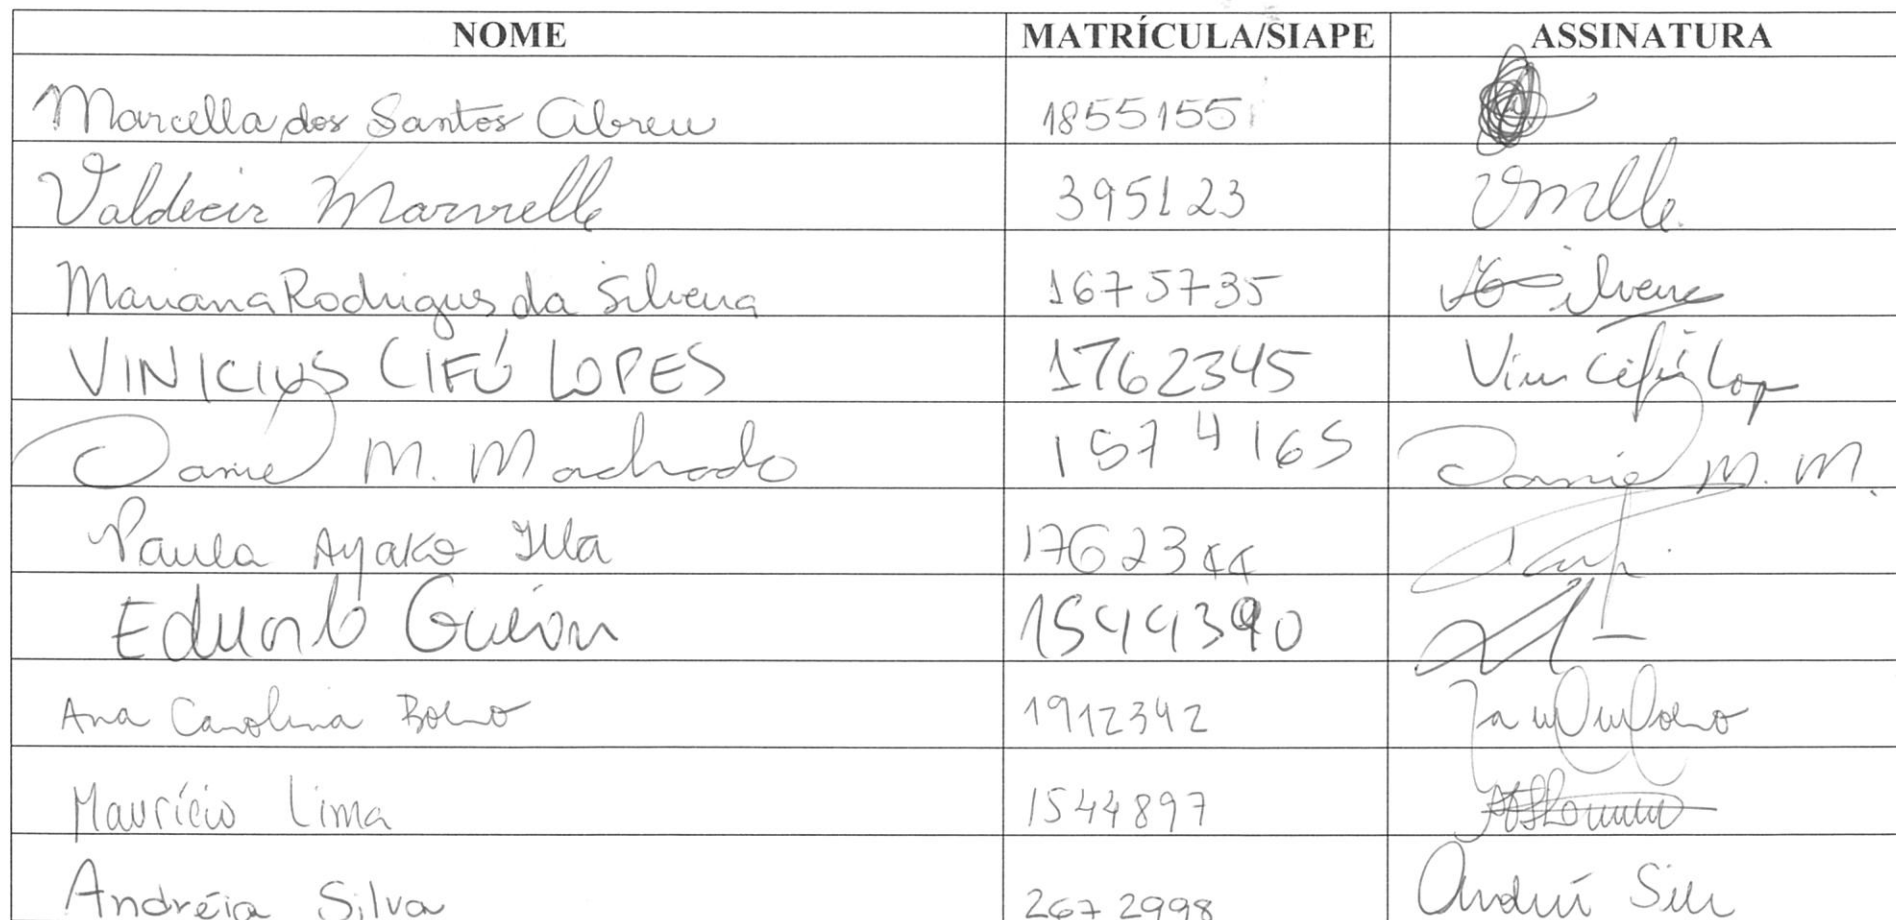 NOME MATRÍCULA/SIAPE ASSINATURA
Marcella dos Santos Abreu 1855155
Valdecir Marvulle 395123
Mariana Rodrigues da Silveira 1675735 Silveira
VINICIUS CIFÚ LOPES 1762345 Vini Cifú Lop
Daniel M. Machado 1574165 Daniel M. M.
Paula Ayako 1762344
Eduardo 1544390
Ana Carolina 1912342
Maurício Lima 1544897
Andréia Silva 2672998